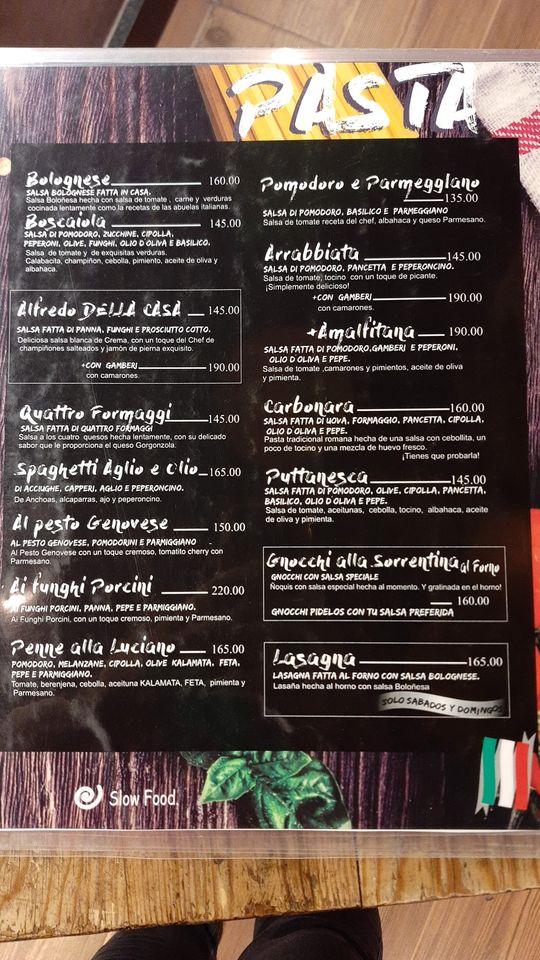 PASTA
Bolognese 160.00
SALSA BOLOGNESE FATTA IN CASA.
Salsa Boloñesa hecha con salsa de tomate , carne y verduras
cocinada lentamente como la recetas de las abuelas italianas.
Boscaiola 145.00
SALSA DI POMODORO, ZUCCHINE, CIPOLLA,
PEPERONI, OLIVE, FUNGHI, OLIO D OLIVA E BASILICO.
Salsa de tomate y de exquisitas verduras.
Calabacita, champiñon, cebolla, pimiento, aceite de oliva y
albahaca.
Alfredo DELLA CASA 145.00
SALSA FATTA DI PANNA, FUNGHI E PROSCIUTTO COTTO.
Deliciosa salsa blanca de Crema, con un toque del Chef de
champiñones salteados y jamón de pierna exquisito.
+CON GAMBERI 190.00
con camarones.
Quattro Formaggi 145.00
SALSA FATTA DI QUATTRO FORMAGGI
Salsa a los cuatro quesos hecha lentamente, con su delicado
sabor que le proporciona el queso Gorgonzola.
Spaghetti Aglio e Olio 165.00
DI ACCIUGHE, CAPPERI, AGLIO E PEPERONCINO.
De Anchoas, alcaparras, ajo y peperoncino.
Al pesto Genovese 150.00
AL PESTO GENOVESE, POMODORINI E PARMIGGIANO
Al Pesto Genovese con un toque cremoso, tomatito cherry con
Parmesano.
Ai Funghi Porcini 220.00
AI FUNGHI PORCINI, PANNA, PEPE E PARMIGGIANO.
Ai Funghi Porcini, con un toque cremoso, pimienta y Parmesano.
Penne alla Luciano 165.00
POMODORO, MELANZANE, CIPOLLA, OLIVE KALAMATA, FETA,
PEPE E PARMIGGIANO.
Tomate, berenjena, cebolla, aceituna KALAMATA, FETA, pimienta y
Parmesano.
Pomodoro e Parmeggiano
135.00
SALSA DI POMODORO, BASILICO E PARMEGGIANO
Salsa de tomate receta del chef, albahaca y queso Parmesano.
Arrabbiata 145.00
SALSA DI POMODORO, PANCETTA E PEPERONCINO.
Salsa de tomate, tocino con un toque de picante.
¡Simplemente delicioso!
+CON GAMBERI 190.00
con camarones.
+Amalfitana 190.00
SALSA FATTA DI POMODORO,GAMBERI E PEPERONI,
OLIO D OLIVA E PEPE.
Salsa de tomate ,camarones y pimientos, aceite de oliva
y pimienta.
Carbonara 160.00
SALSA FATTA DI UOVA, FORMAGGIO, PANCETTA, CIPOLLA,
OLIO D OLIVA E PEPE.
Pasta tradicional romana hecha de una salsa con cebollita, un
poco de tocino y una mezcla de huevo fresco.
¡Tienes que probarla!
Puttanesca 145.00
SALSA FATTA DI POMODORO, OLIVE, CIPOLLA, PANCETTA,
BASILICO, OLIO D OLIVA E PEPE.
Salsa de tomate, aceitunas, cebolla, tocino, albahaca, aceite
de oliva y pimienta.
Gnocchi alla Sorrentina al Forno
GNOCCHI CON SALSA SPECIALE
Ñoquis con salsa especial hecha al momento. Y gratinada en el horno!
160.00
GNOCCHI PIDELOS CON TU SALSA PREFERIDA
Lasagna 165.00
LASAGNA FATTA AL FORNO CON SALSA BOLOGNESE.
Lasaña hecha al horno con salsa Boloñesa
SOLO SABADOS Y DOMINGOS
Slow Food